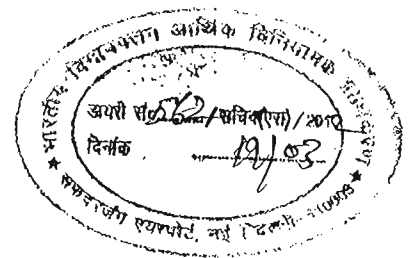 भारतीय विमानपत्तन आर्थिक विनियामक प्राधिकरण
डायरी सं 562/सचिव(एरा)/2010
दिनांक 19/03
★ सफदरजंग एयरपोर्ट, नई दिल्ली-110003 ★